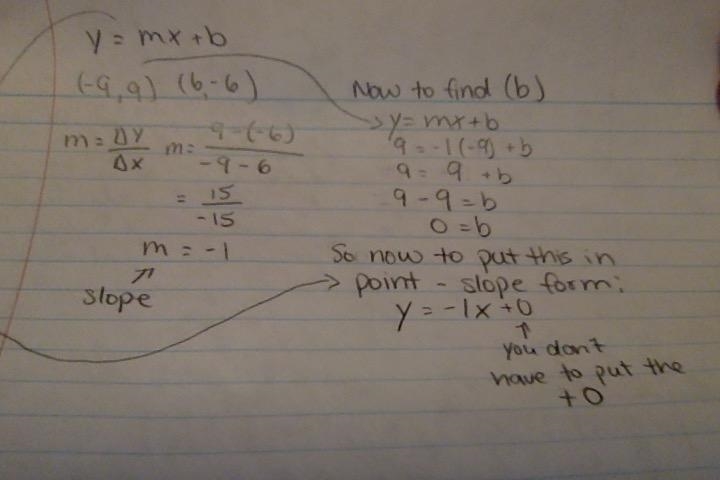 y = mx + b
(-9, 9) (6, -6)
m = ΔY/ΔX m = 9-(-6)/-9-6
= 15/-15
m = -1
slope
Now to find (b)
y = mx + b
9 = -1(-9) + b
9 = 9 + b
9 - 9 = b
0 = b
So now to put this in
point - slope form:
y = -1x + 0
you don't
have to put the
+ 0